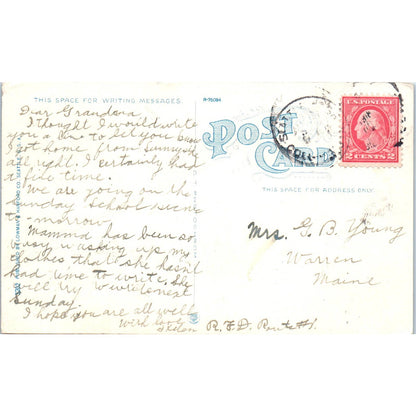 THIS SPACE FOR WRITING MESSAGES.
Dear Grandma
I thought I would write
you a line to let you know
I got home from Sunnyside
all right. I certainly had
a fine time.
We are going on the
Sunday School picnic
to-morrow.
Mamma has been so
busy washing up my
clothes that she hasn't
had time to write. She
will try to write next
Sunday.
I hope you are all well
With love
Helen
POST
CARD
THIS SPACE FOR ADDRESS ONLY.
U.S. POSTAGE
2 CENTS 2
Mrs. G. B. Young
Warren
Maine
R.F.D. Route #1.